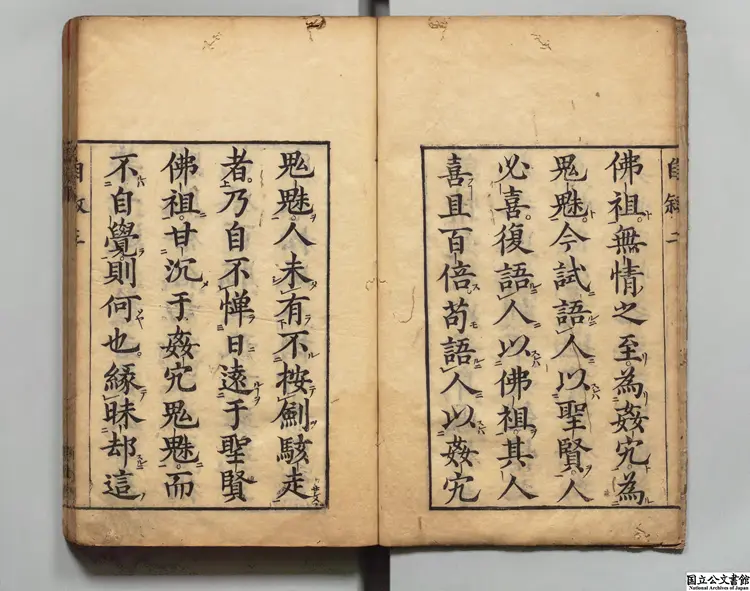 佛祖。無情之至。為姦宄為
鬼魅。今試語人以聖賢。人
必喜。復語人以佛祖。其人
喜且百倍。苟語人以姦宄
鬼魅。人未有不按劍駭走
者。乃自不憚日遠于聖賢
佛祖。甘沉于姦宄鬼魅。而
不自覺。則何也。緣昧却這
自叙二
自叙三
国立公文書館
National Archives of Japan